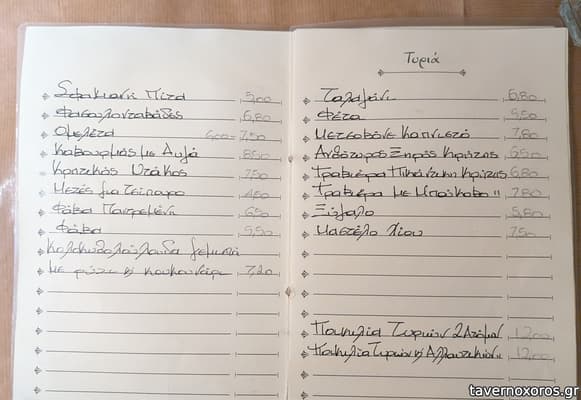 Σφακιανή Πίτα 5,00
Φασολονταβάδες 6,80
Ομελέτα 6,00-7,50
Καβουρμάς με Αυγά 8,50
Κρητικός Ντάκος 7,50
Μεζές για Τσίπουρο
Φάβα Παντρεμένη 6,50
Φάβα 5,50
Κολοκυθολούλουδα γεμιστά
με ρύζι κ κουκουνάρι 7,20
Τυριά
Ταλαγάνι 6,80
Φέτα 5,50
Μετσοβόνε Καπνιστό 7,80
Ανθότυρος Ξηρός Κρήτης 6,50
Γραβιέρα Πικάντικη Κρήτης 6,80
Γραβιέρα με Μπούκοβο " 7,80
Ξύγαλο 5,80
Μαστέλο Χίου 7,50
Ποικιλία Τυριών 2 Ατόμων 12,00
Ποικιλία Τυριών κ Αλλαντικών 12,00
tavernoxoros.gr